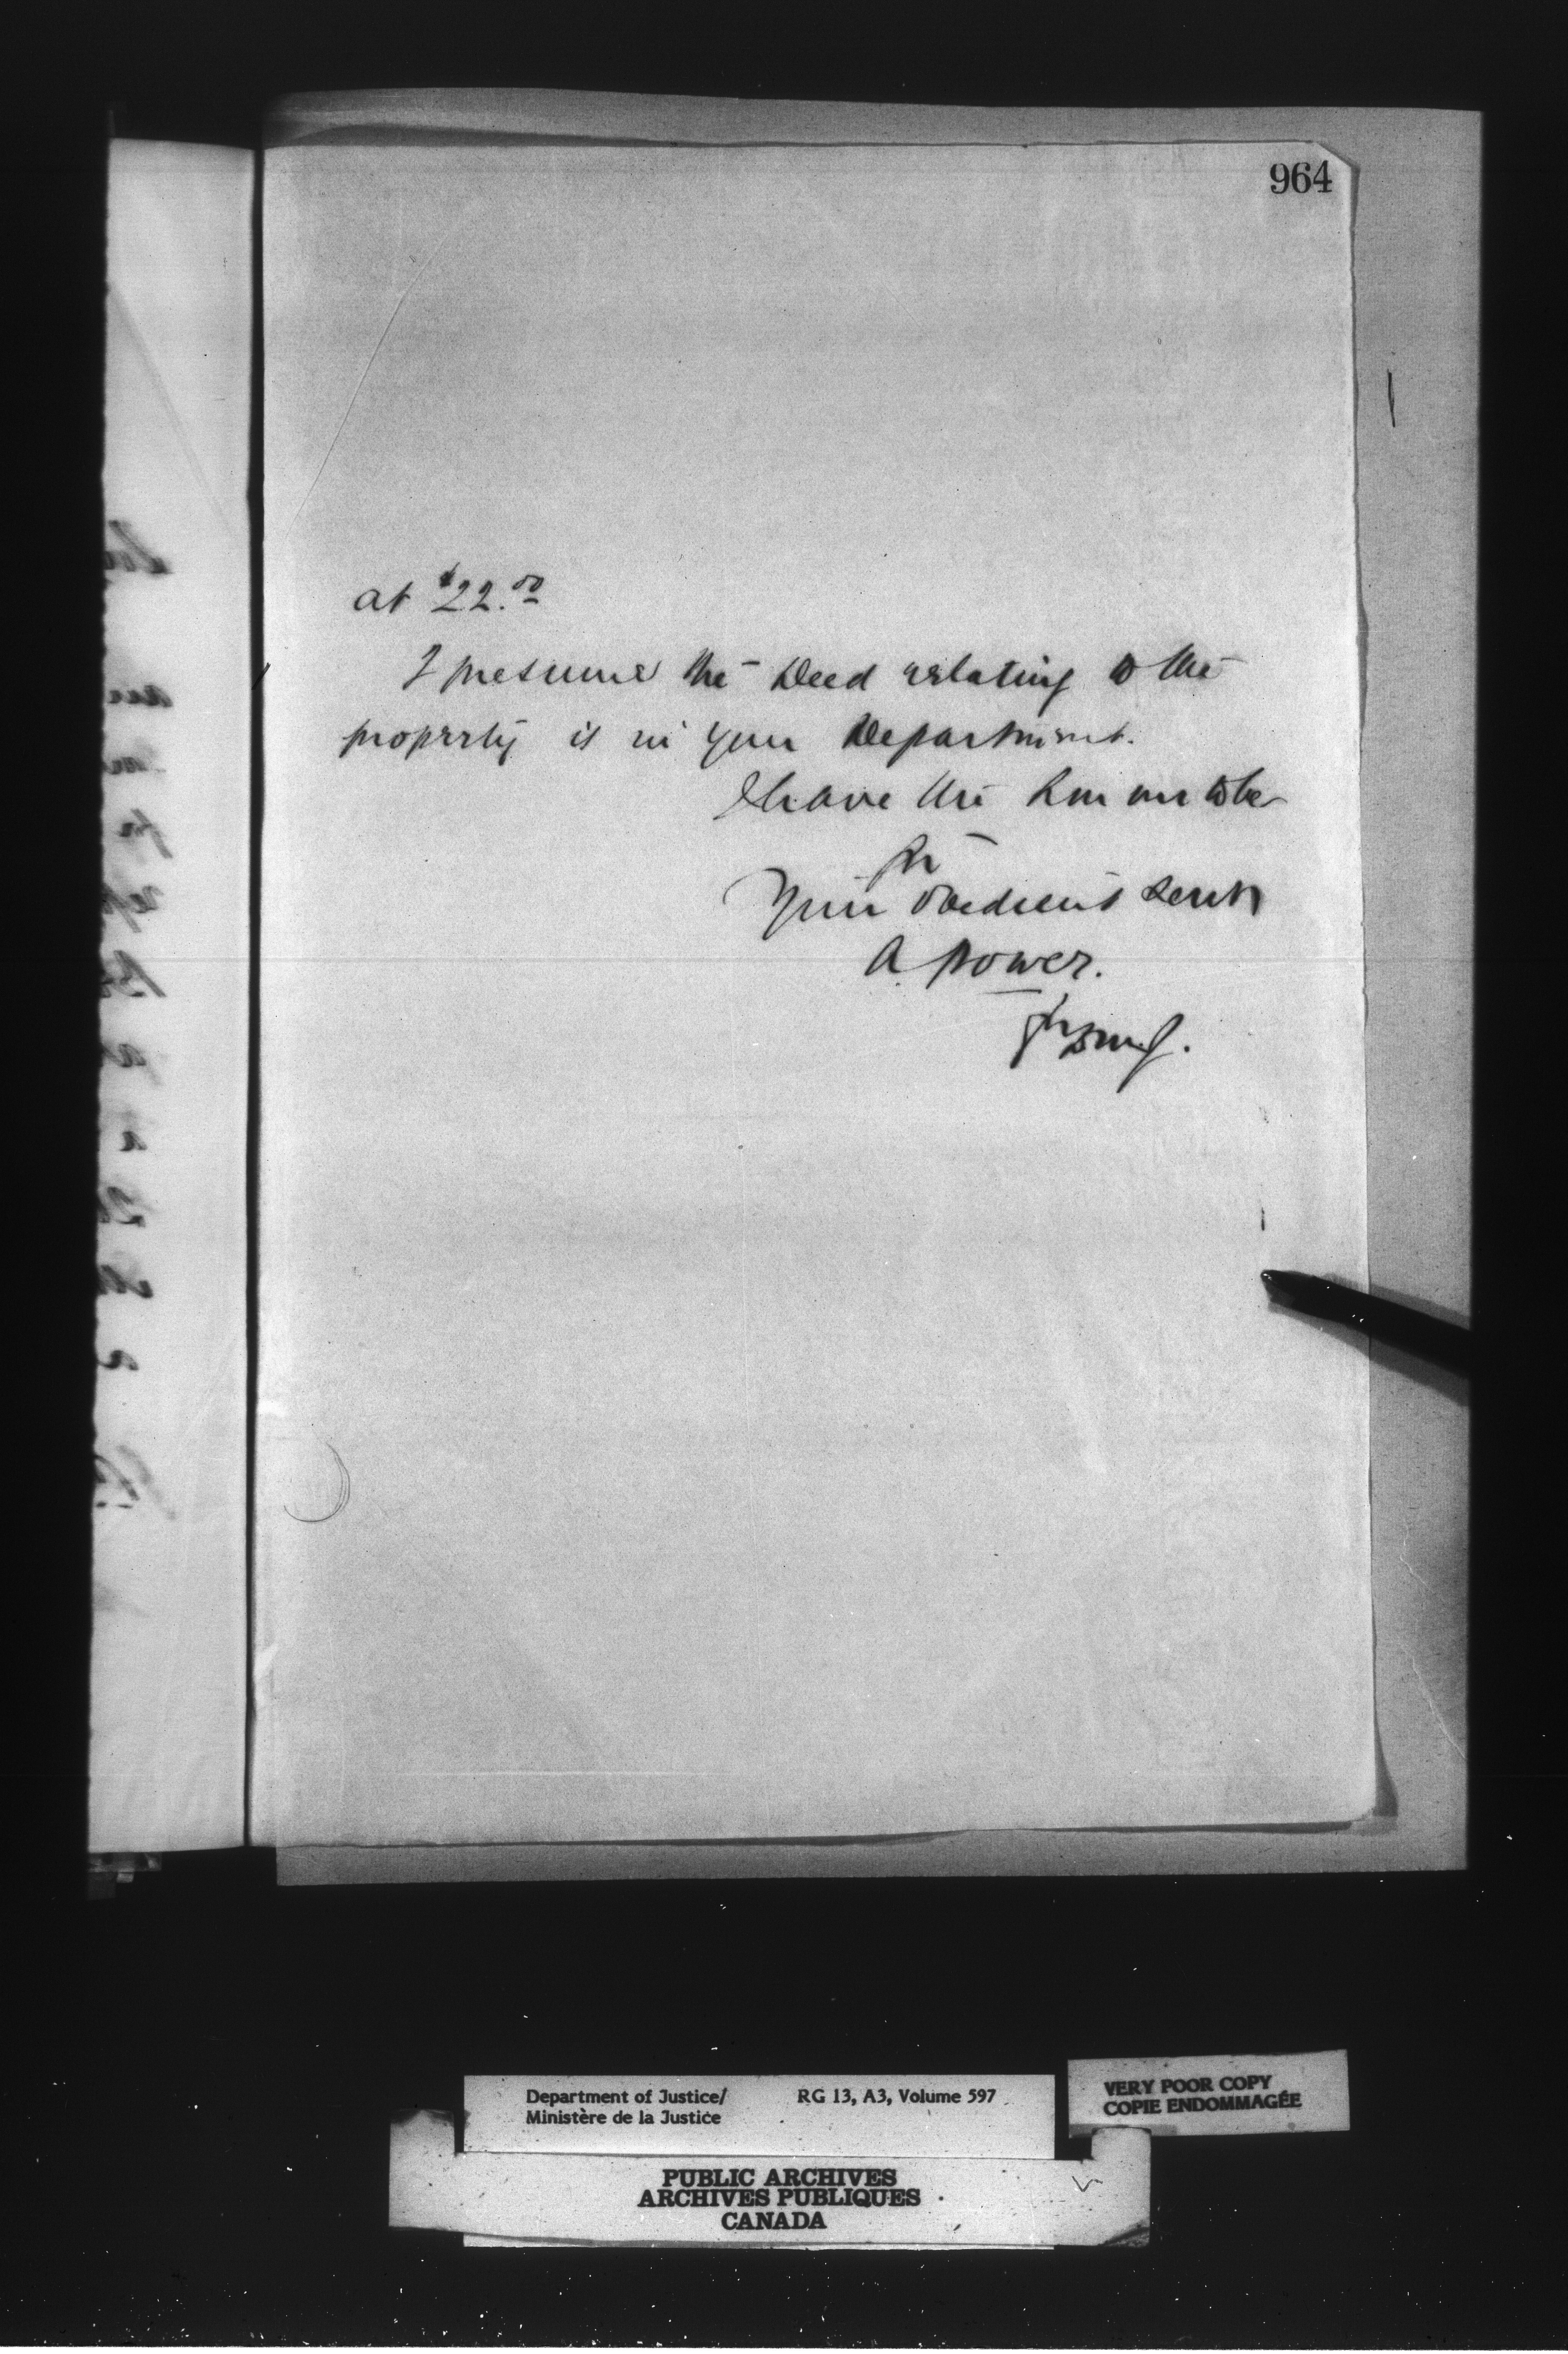 964
at $22.00
I presume the Deed relating to the
property is in your Department.
I have the honour to be
Sir
Your obedient Servt
A Power.
Department of Justice/ RG 13, A3, Volume 597
Ministère de la Justice
VERY POOR COPY
COPIE ENDOMMAGÉE
PUBLIC ARCHIVES
ARCHIVES PUBLIQUES
CANADA